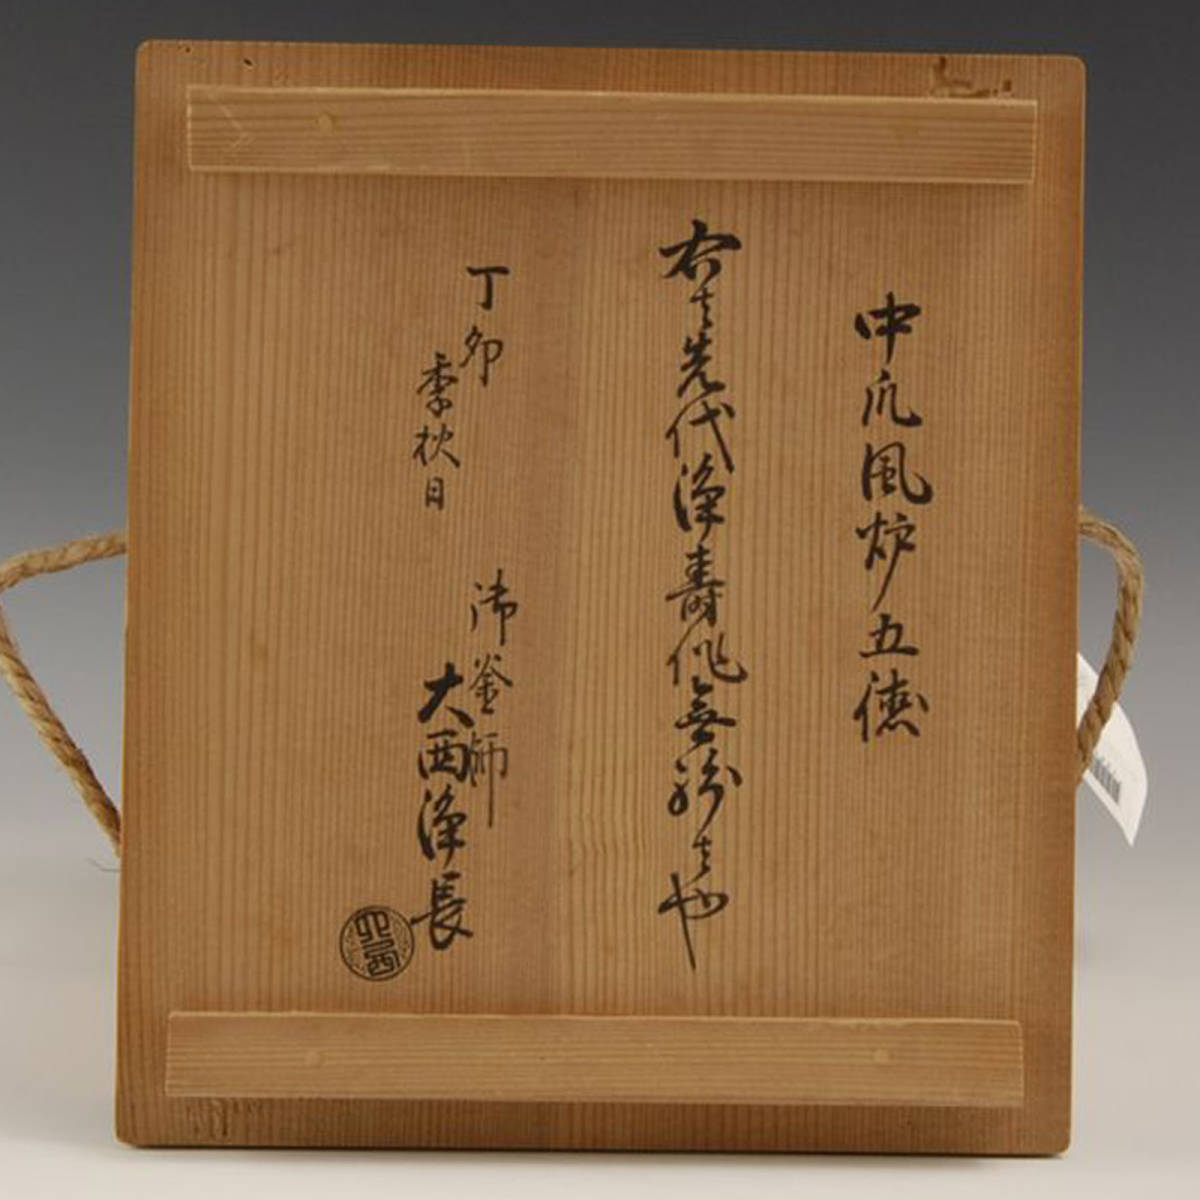 中爪風炉五徳
右者先代浄寿作無紛者也
丁卯
季秋日
御釜師
大西浄長